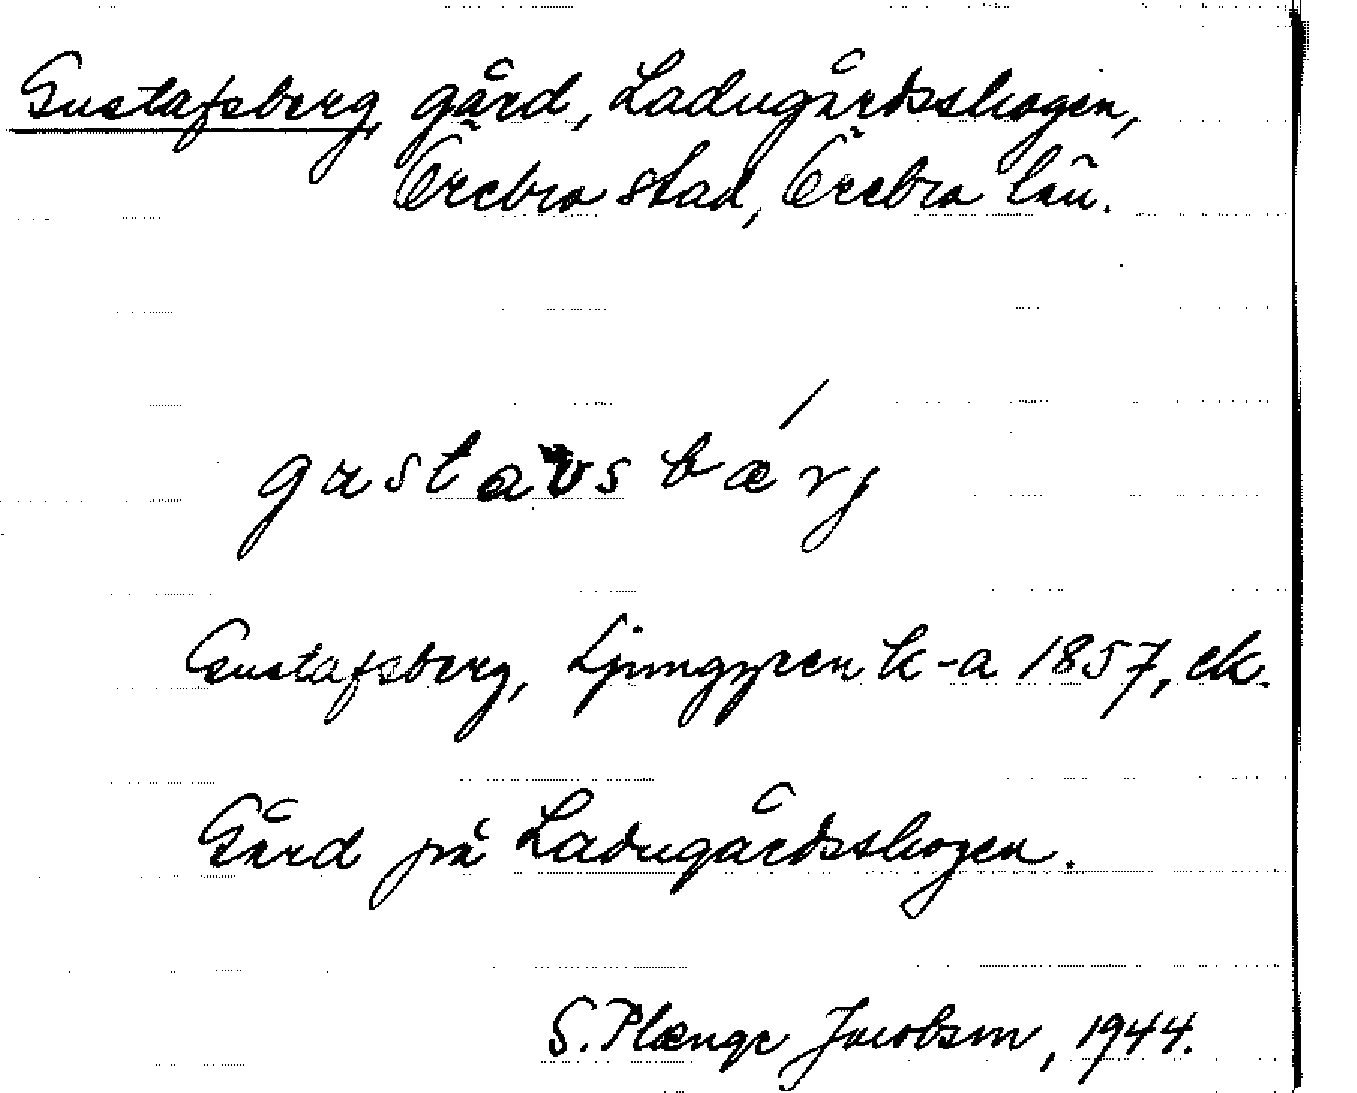 Gustafsberg, gård, Ladugårdsskogen,
Örebro stad, Örebro län.
gastavsbærj
Gustafsberg, Ljunggren k-a 1857, ek.
Gård på Ladugårdsskogen.
S. Plænge Jacobson, 1944.